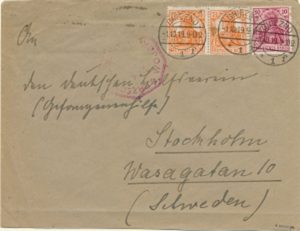 An
den deutschen Hilfsverein
(Gefangenenhilfe)
Stockholm
Wasagatan 10
(Schweden)